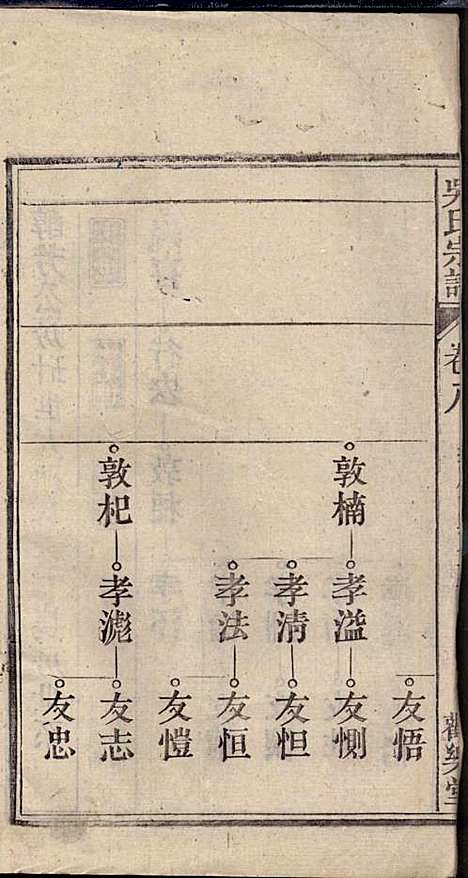 吳氏宗譜
卷八
敦楠
敦杞
孝溢
孝清
孝法
孝滮
友悟
友惻
友怛
友恒
友愷
友志
友忠